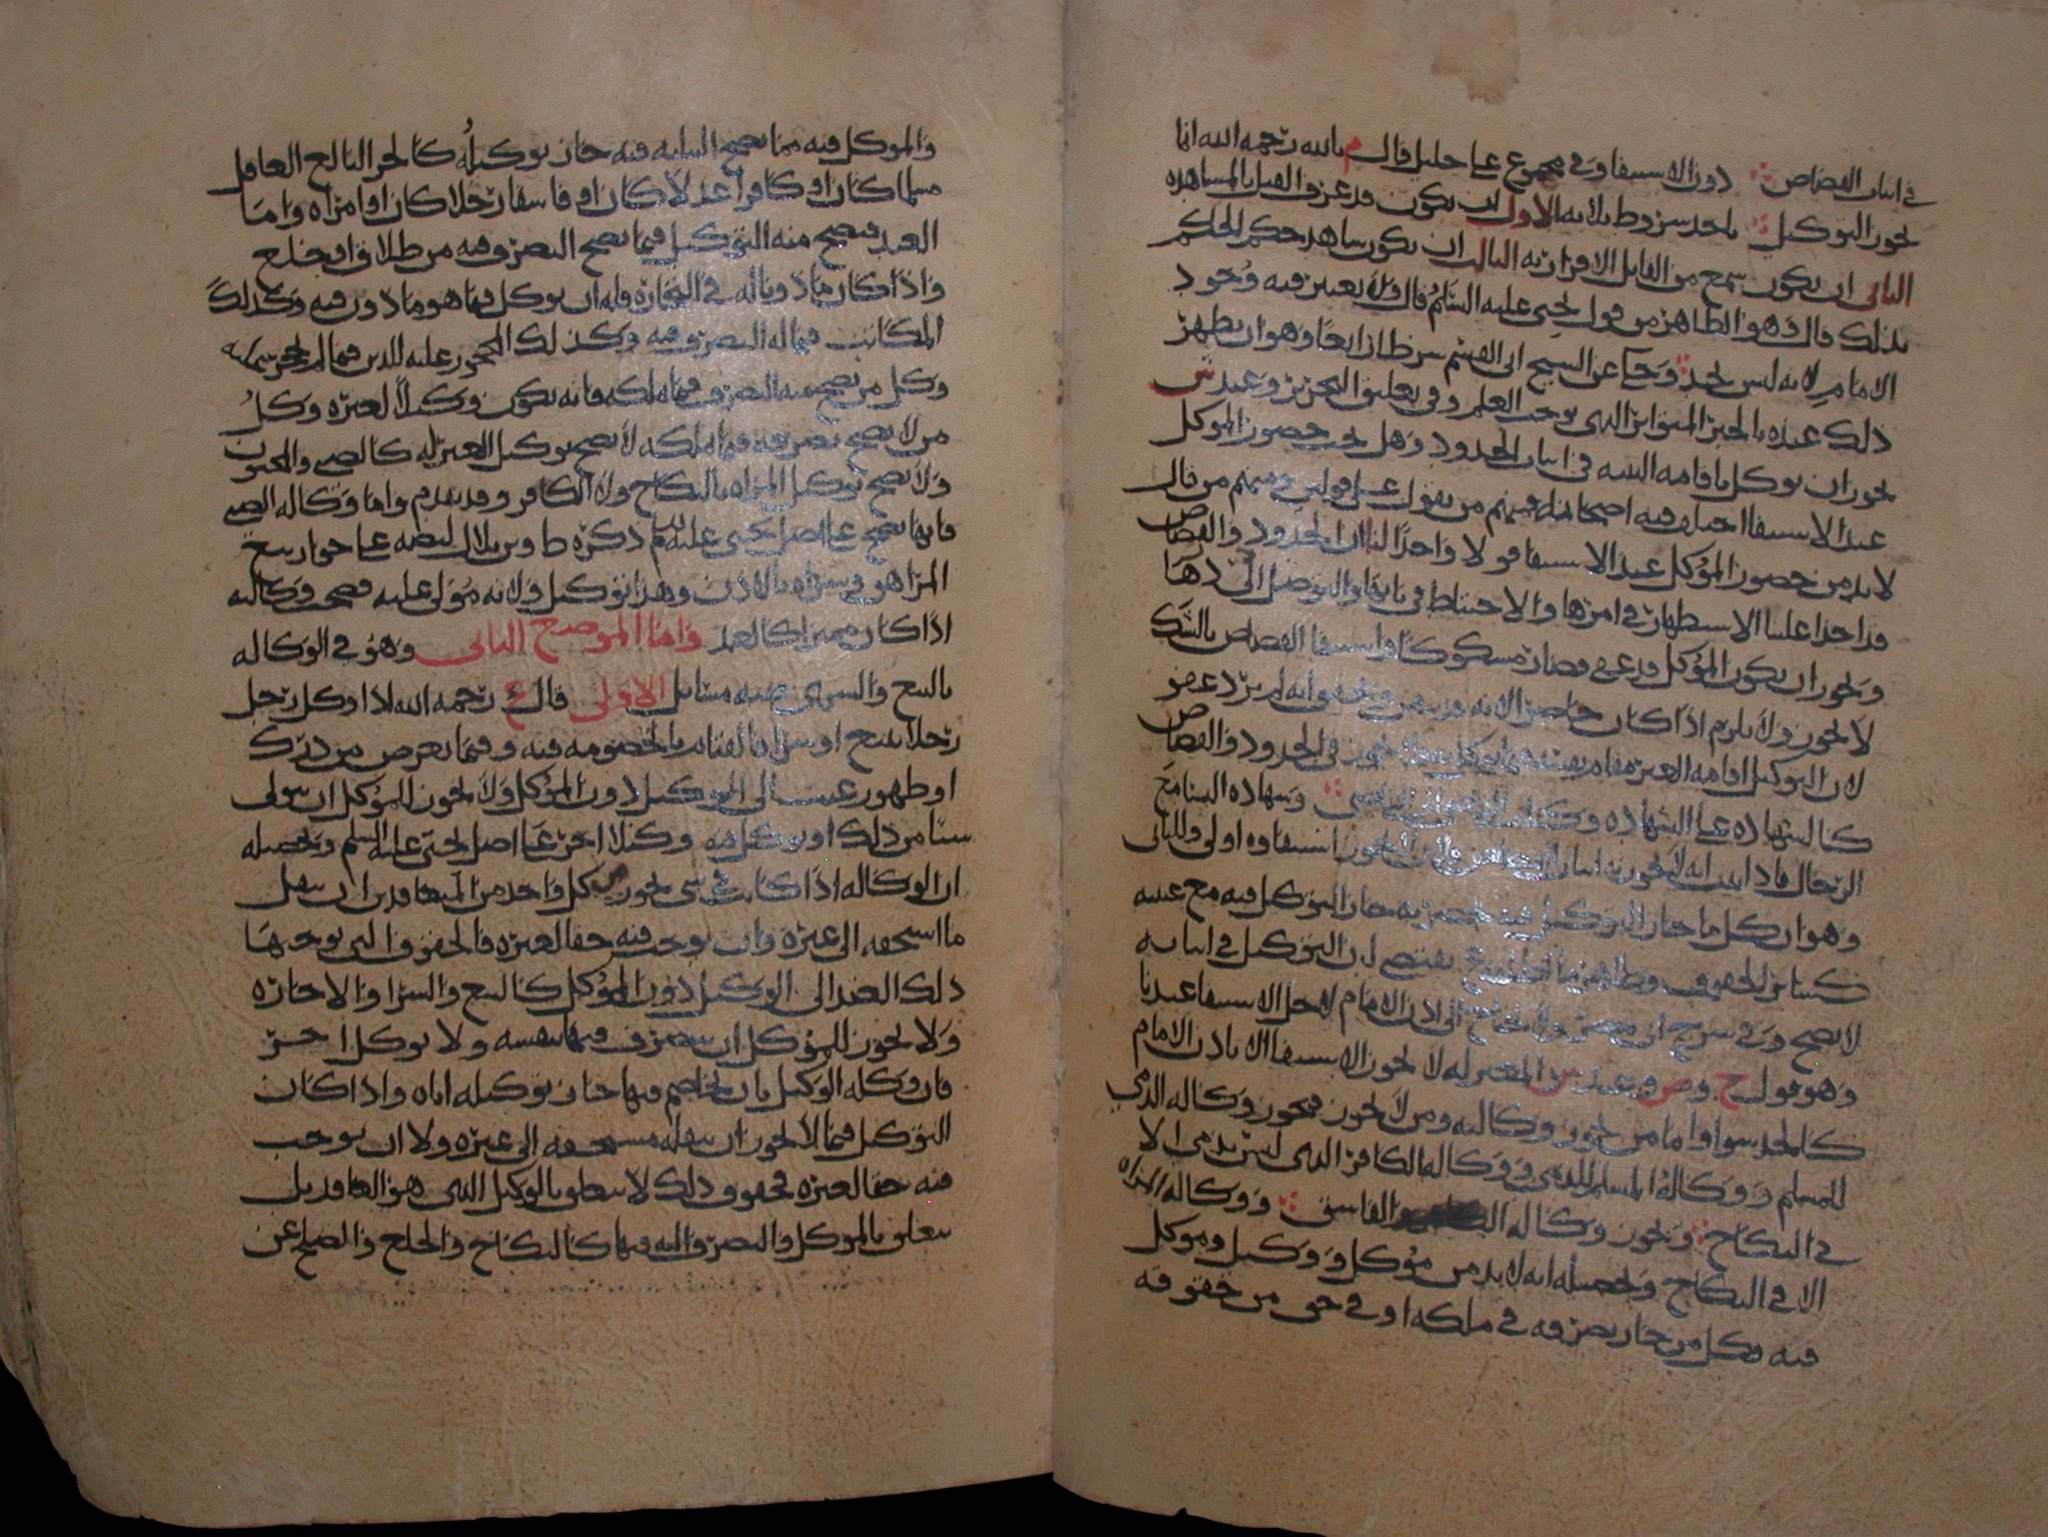 في اثبات القصاص دون الاستيفا وفي مجموع علي خليل قال م بالله رحمه الله انما
يجوز التوكيل باحد شروط ثلاثه الاول ان يكون قد عرف القتل بالمشاهده
الثاني ان يكون سمع من القاتل الاقرار به الثالث ان يكون شاهد حكم الحاكم
بذلك قال وهو الظاهر من قول يحيى عليه السلم قال ولا يعتبر فيه وجود
الامام لانه ليس بحد وحكا عن الشيخ ابي القسم شرطا رابعا وهو ان يظهر
ذلك عنده بالخبر المتواتر الذي يوجب العلم وفي تعليق التحرير وعند ش
يجوز ان يوكل باقامه البينه في اثبات الحدود وهل يجب حضور الموكل
عند الاستيفا اختلف فيه اصحابنا فمنهم من يقول على قولين ومنهم من قال
لا بد من حضور الموكل عند الاستيفا قولا واحدا لنا ان الحدود والقصاص
قد اخذ علينا الاستظهار في امرها والاحتياط في بابها والتوصل الى درءها
ويجوز ان يكون الموكل قد عفى فصار مشكوكا واستيفا القصاص بالشك
لا يجوز ولا يلزم اذا كان حاضرا لانه
لان التوكيل اقامه الغير مقام نفسه فيما يوكل فلا يجوز في الحدود والقصاص
كالشهاده على الشهاده وكتاب القاضي الى القاضي وشهاده النسا مع
الرجال فاذا ثبت انه لا يجوز به اثبات القصاص فلان لا يجوز استيفاوه اولى وللثاني
وهو ان كل ما جاز التوكيل فيه بحضرته جاز التوكيل فيه مع غيبته
كسائر الحقوق يقتضي ان التوكيل في اثباته
لا يصح وفي شرح ابي مضر ولا يحتاج الى اذن الامام لاجل الاستيفا عندنا
وهو قول ح وص وعند المعتزله لا يجوز الاستيفا الا باذن الامام
كالحد سوا واما من يجوز وكالته ومن لا يجوز فيجوز وكاله الذمي
للمسلم ووكاله المسلم للذمي ووكاله الكافر الذي ليس بذمي الا
في النكاح ويجوز وكاله والفاسق ووكاله المراه
الا في النكاح وتحصيله انه لا بد من موكل ووكيل وموكل
فيه فكل من جاز تصرفه في ملكه او في حق من حقوقه
والموكل فيه مما يصح النيابه فيه جاز توكيله كالحر البالغ العاقل
مسلما كان او كافرا عدلا كان او فاسقا رجلا كان او امراه واما
العبد فيصح منه التوكيل فيما يصح التصرف فيه من طلاق او خلع
واذا كان ماذونا له في التجاره فله ان يوكل فيما هو ماذون فيه وكذلك
المكاتب فيما له التصرف فيه وكذلك المحجور عليه للدين فيما لم
وكل من يصح منه التصرف فيما يملكه فانه يكون وكيلا لغيره وكل
من لا يصح تصرفه فيما يملكه لا يصح توكيل الغير له كالصبي والمجنون
ولا يصح توكيل المراه بالنكاح ولا الكافر وقد تقدم واما وكاله الصبي
فانها تصح على اصل يحيى عليه السلم ذكره ط وبن بلال لنصه على جواز بيع
المراهق وشراه بالاذن وهذا توكيل ولانه مولى عليه فصحت وكالته
اذا كان مميزا كالعبد واما الموضع الثاني وهو في الوكاله
بالبيع والشرى ففيه مسائل الاولى قال ع رحمه الله اذا وكل رجل
رجلا ببيع او شرا فالقيام بالخصومه فيه وفيما يعرض من درك
او ظهور عيب الى الوكيل دون الموكل ولا يجوز للموكل ان يتولى
شيئا من ذلك او يوكل به وكيلا اخر على اصل يحيى عليه السلم وتحصيله
ان الوكاله اذا كانت في شي يجوز لكل واحد من المتعاقدين ان ينقل
ما استحقه الى غيره وان يوجب فيه حقا لغيره فالحقوق التي يوجبها
ذلك العقد الى الوكيل دون الموكل كالبيع والشرا والاجاره
ولا يجوز للموكل ان يتصرف فيها بنفسه ولا يوكل اخر
فان وكله الوكيل بان يخاصم فيها جاز توكيله اياه واذا كان
التوكيل فيما لا يجوز ان ينقله مستحقه الى غيره ولا ان يوجب
فيه حقا لغيره فحقوق ذلك لا يتعلق بالوكيل الذي هو العاقد بل
يتعلق بالموكل والتصرف اليه فيها كالنكاح والخلع والصلح عن